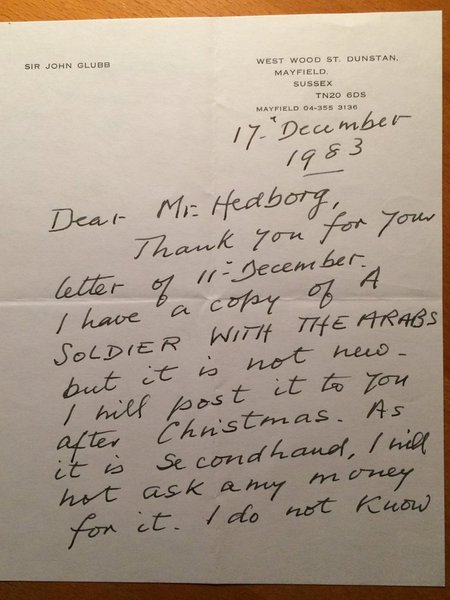 SIR JOHN GLUBB
WEST WOOD ST. DUNSTAN,
MAYFIELD,
SUSSEX
TN20 6DS
MAYFIELD 04-355 3136
17th December
1983
Dear Mr. Hedborg,
Thank you for your
letter of 11th December.
I have a copy of A
SOLDIER WITH THE ARABS
but it is not new.
I will post it to you
after Christmas. As
it is secondhand, I will
not ask any money
for it. I do not know